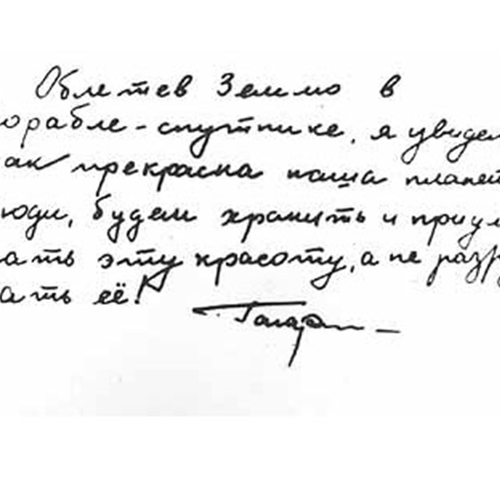 Облетев Землю в
орабле-спутнике, я увидел
ак прекрасна наша планет
юди, будем хранить и приум
ать эту красоту, а не разру
ать её!
Гагарин